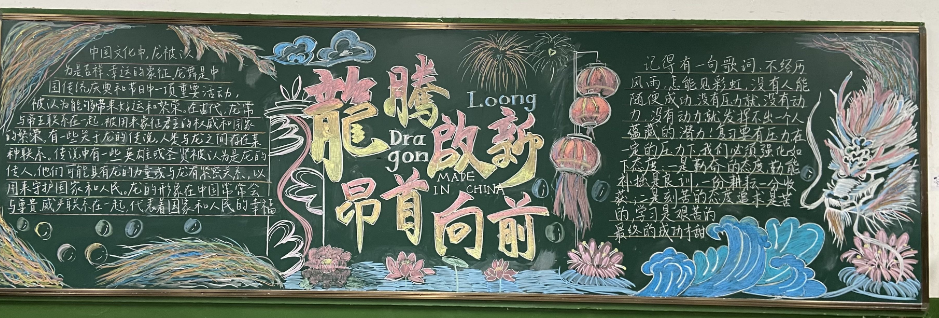 中国文化中,龙被认
为是吉祥,幸运的象征,龙舞是中
国传统庆典和节日中一项重要活动,
被认为能够带来好运和繁荣,在古代,龙常
与帝王联系在一起,被用来象征君主的权威和国家
的繁荣,有一些关于龙的传说,人类与龙之间存在某
种联系,传说中有一些英雄或圣贤被认为是龙的
传人,他们可能具有龙的力量或与龙有紧密关系,以
用来守护国家和人民,龙的形象在中国常常会
与尊贵,威严联系在一起,代表着国家和人民的幸福
龍騰啟新
Loong
Dra
gon
MADE
IN CHINA
昂首向前
记得有一句歌词,不经历
风雨,怎能见彩虹,没有人能
随便成功,没有压力就没有动
力,没有动力就发挥不出一个人
蕴藏的潜力!复习要有压力在
一定的压力下我们必须强化如
下态度:一是勤奋的态度,勤能
补拙是良训,一份耕耘一分收
获,二是刻苦的态度
的,学习是很苦的
最终的成功